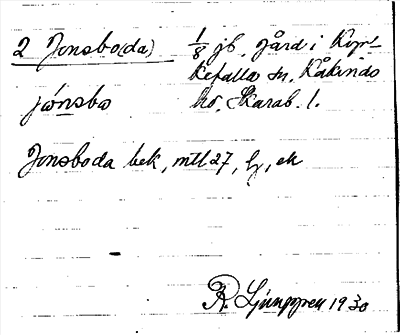 2 Jonsbo(da) 1/8 jb. gård i Kyrk-
kefalla sn, Kåkinds
jónsbo hd, Skarab. l.
Jonsboda bek, mtl 27, ly, ek
R. Ljunggren 1930